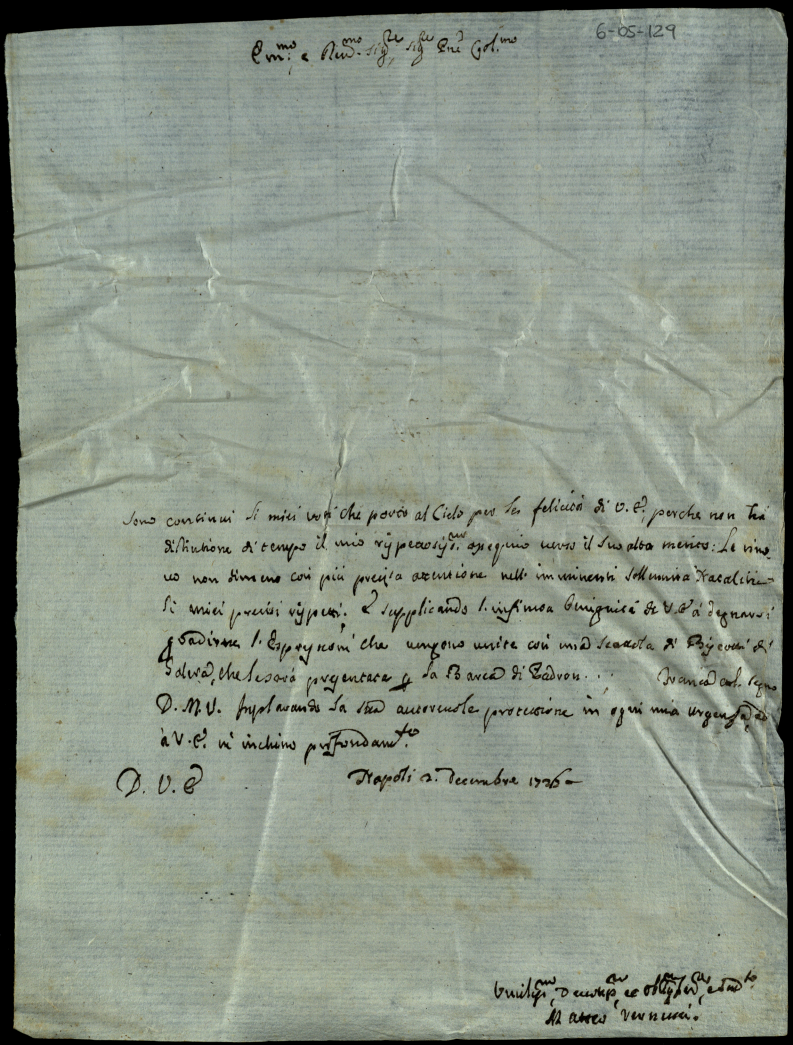 6-05-129
Em:mo e Rev:mo Sig:re Sig:re Pne Col:mo
Sono continui li miei voti che porto al Cielo per la felicità di V.E:, perche non há
distintione di tempo il mio rispettosiss:mo ossequio verso il Suo alto merito: Le rino
vo non dimeno con più precisa attentione nell' imminenti sollennità Natalitie
li miei precisi rispetti; E supplicando l' infinita benignità di V.E. á degnarsi
gradirne l' Espressioni che vengono unite con una Scattola di di
che le sará presentata la Barca di Padron . . . Franca col. segno
D. M. V. Inplorando la Sua autorevole protettione in ogni mia urgenza, ed
à V.E. m' inchino profondam:te
D. V. E Napoli 2. Decembre 1726
Umiliss:mo, Devotiss:mo, et obligatiss:mo
Matteo